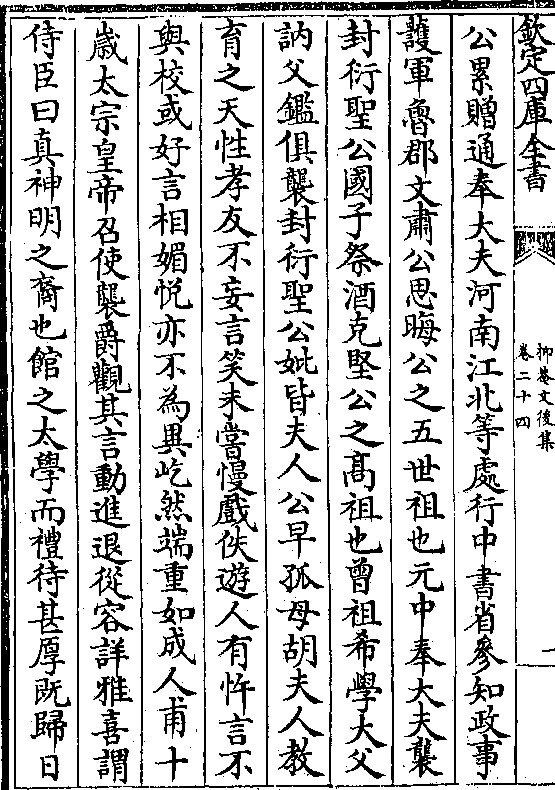 欽定四庫全書
抑菴文後集
卷二十四
一
公累贈通奉大夫河南江北等處行中書省參知政事
護軍魯郡文肅公思晦公之五世祖也元中奉大夫襲
封衍聖公國子祭酒克堅公之髙祖也曾祖希學大父
訥父鑑俱襲封衍聖公妣皆夫人公早孤母胡夫人教
育之天性孝友不妄言笑未嘗慢戲佚遊人有忤言不
與校或好言相媚悅亦不為異屹然端重如成人甫十
嵗太宗皇帝召使襲爵觀其言動進退從容詳雅喜謂
侍臣曰真神明之裔也館之太學而禮待甚厚既歸日